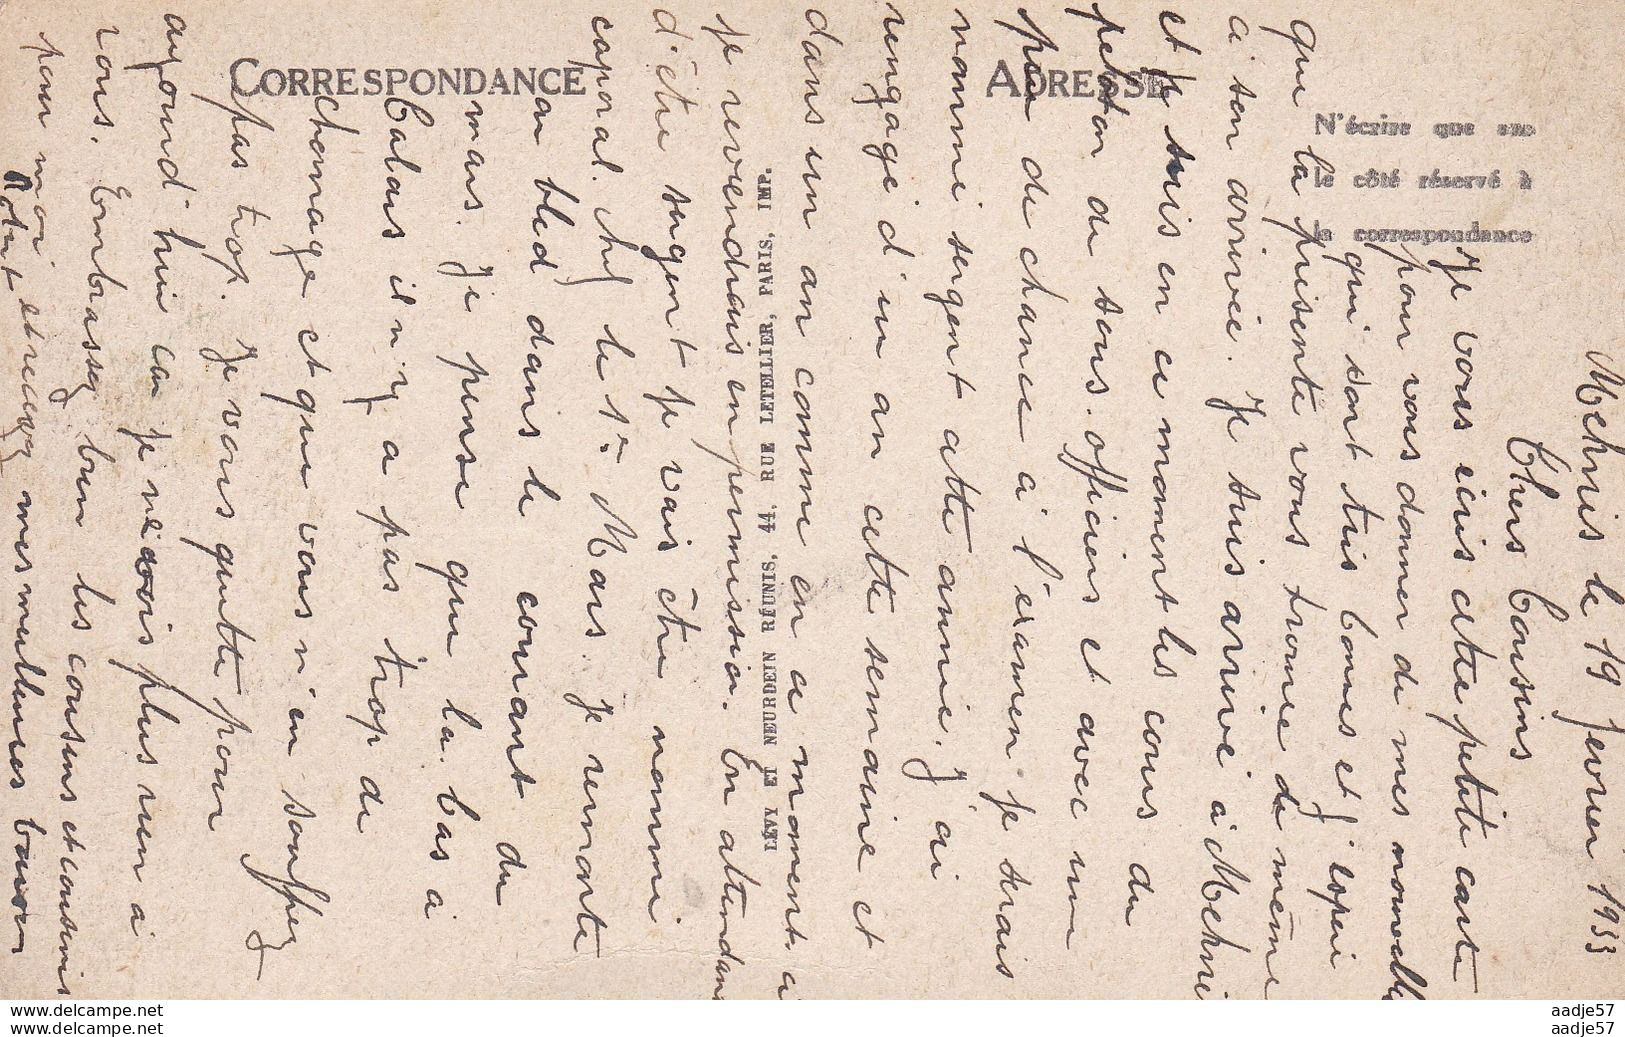 Meknès le 19 Fevrier 1933
Chers Cousins
Je vous écris cette petite carte
pour vous donner de mes nouvelle
qui sont très bonnes et j'espère
que la présente vous trouve de même
à son arrivée. Je suis arrivé à
et je suis en ce moment les cours du
peloton de sous. officiers et avec un
peu de chance à l'examen je serais
nommé sergent cette année. J'ai
rengagé d'un an cette semaine et
dans un an comme en a moment. ci
je reviendrais en permission. En attendant
d'être sergent je vais être nommé
caporal. chef le 1er Mars. Je remonte
au bled dans le courant du
mars. Je pense que la. bas à
Calais il n'y a pas trop de
chomage et que vous n'en souffrez
pas trop. Je vous quitte pour
aujourd'hui car je ne vois plus rien à
vous. Embrassez bien les cousins et cousines
pour moi et recevez mes meilleures baisers
CORRESPONDANCE
ADRESSE
N'écrire que sur
le côté réservé à
la correspondance
LÉVY ET NEURDEIN RÉUNIS, 44, RUE LETELLIER, PARIS, IMP.
aadje57
aadje57